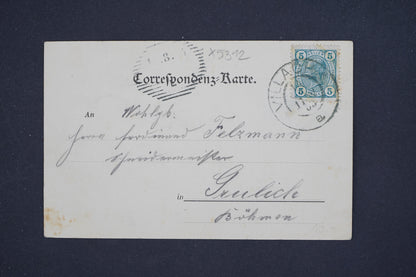 8.
x5312
Correspondenz-Karte.
5 5
5 5
VILLACH
An Wohlgb.
Herrn Ferdinand Felzmann
Schneidermeister
in Grulich
Böhmen